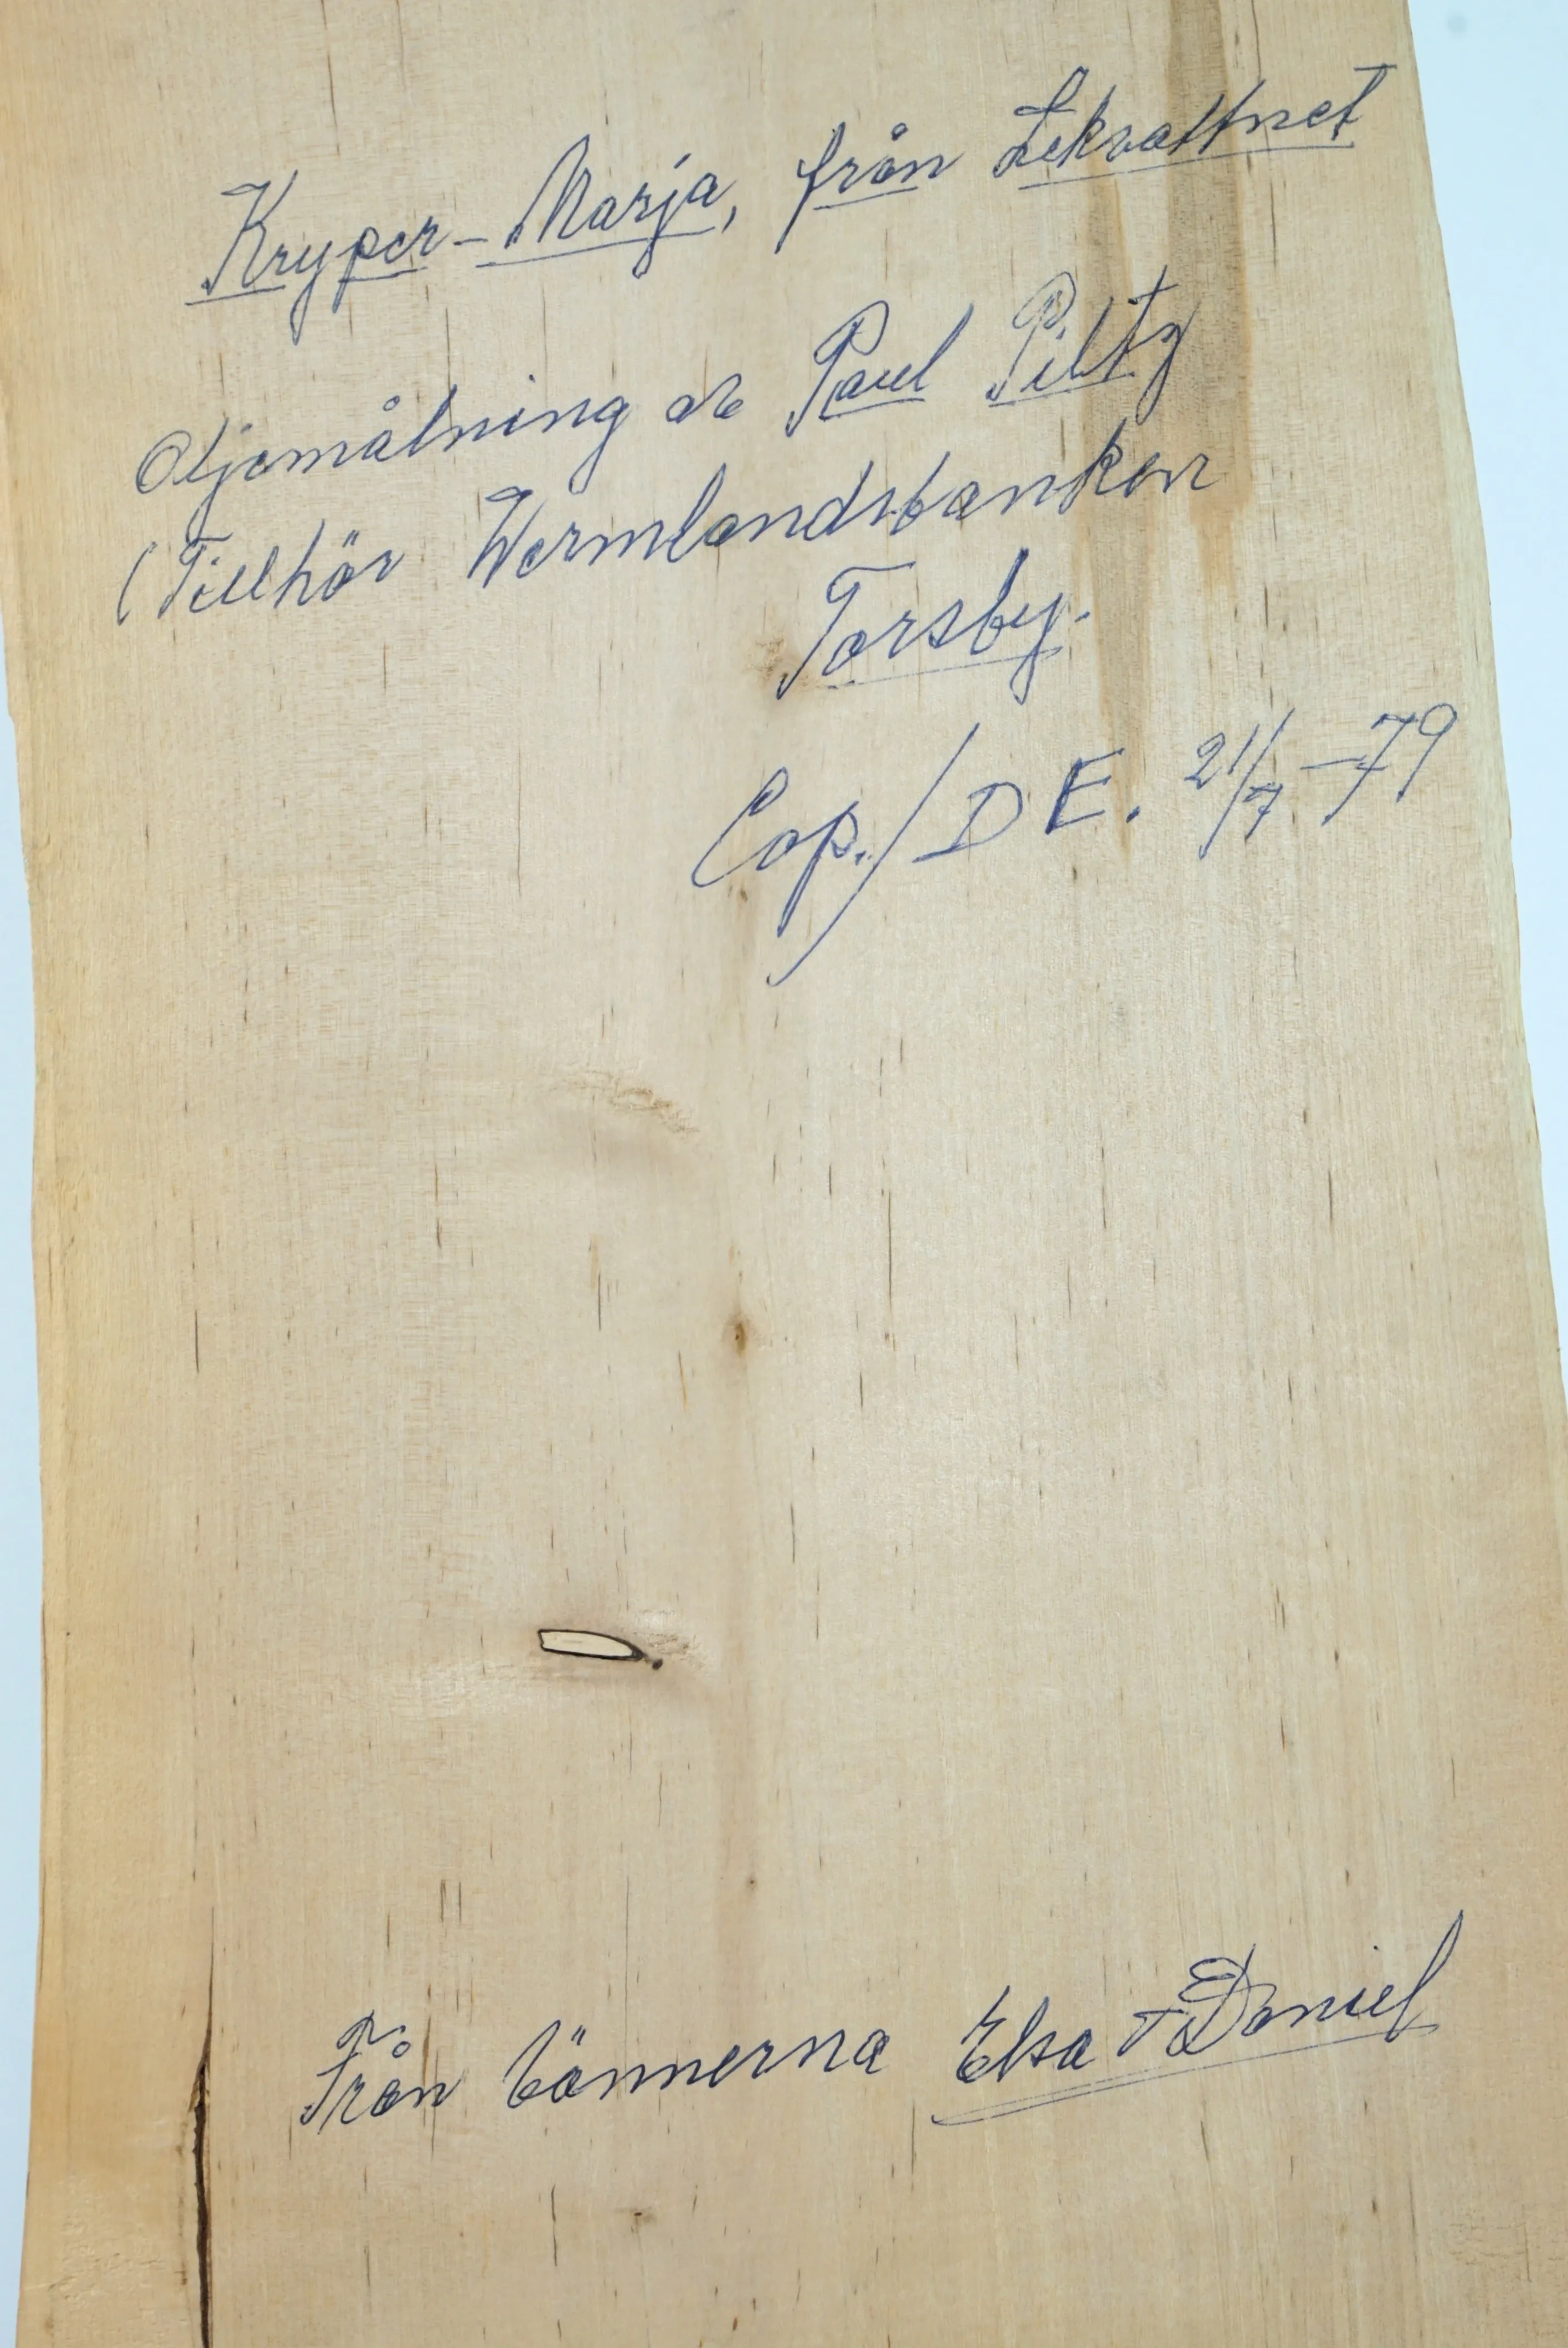 Kryper-Marja, från Lekvattnet
Oljemålning av Paul Piltz
(Tillhör Wermlandsbanken
Torsby.
Cop./D E. 21/7 -79
Från Vännerna Elsa + Daniel